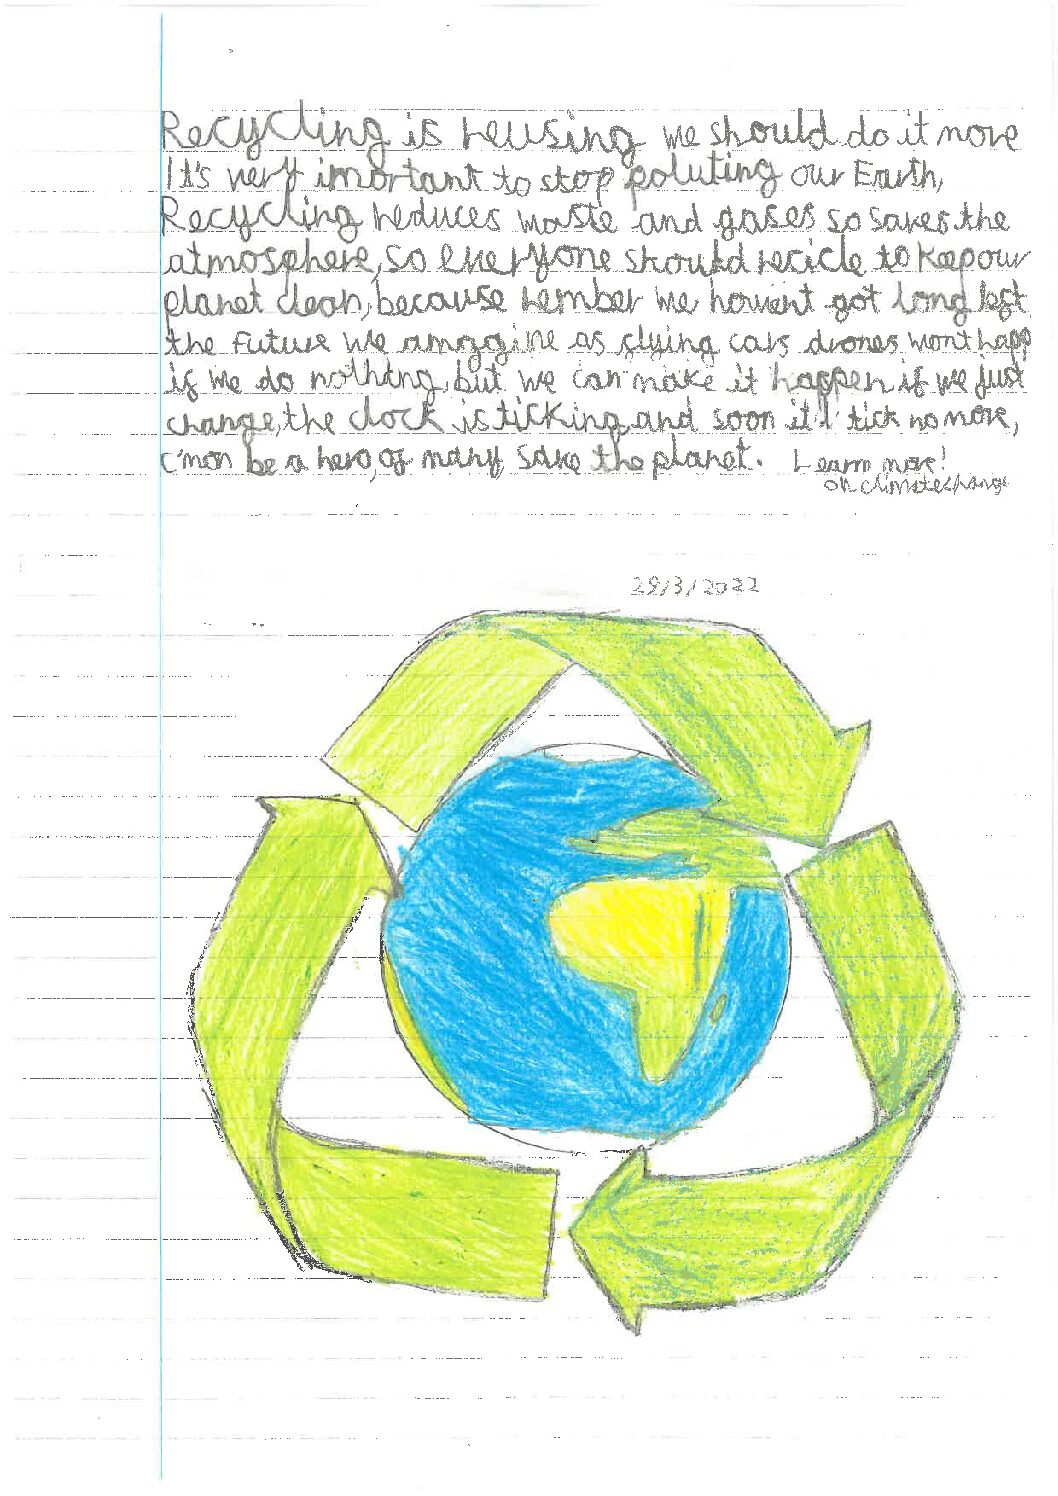 Recycling is reusing we should do it more
It's very imortant to stop poluting our Earth,
Recycling reduces waste and gases so saves the
atmosphere, so everyone should recicle to keep our
planet clean, because rember we havent got long left
the future we amagine as flying cars drones wont happ
if we do nothing, but we can make it happen if we just
change, the clock is ticking and soon it'l tick no more,
c'mon be a hero, of many save the planet. Learn more!
on climatechange
29/3/2022